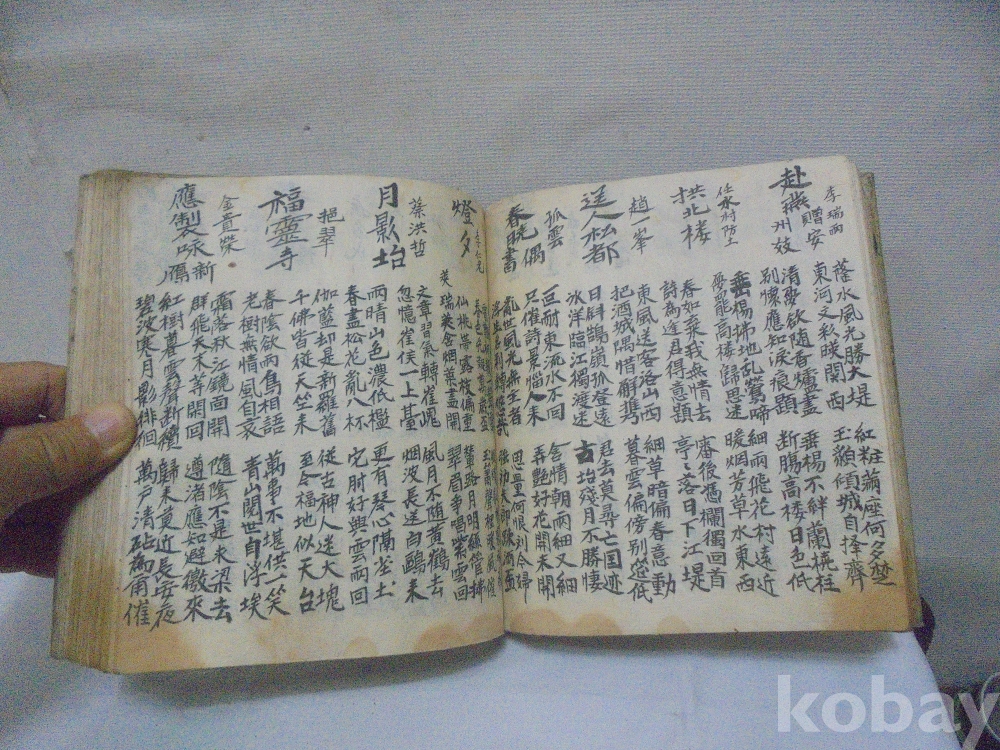 李瑞雨
赴燕贈安州妓
蓬水風光勝大堤
紅粧滿座何多
東河文彩暎関西
玉貌傾城自擇齊
清夢欲随香爐盡
垂楊不絆蘭橈
別懐應知淚痕題
断膓高楼日色低
任水村防土
拱北楼
垂楊拂地乱鶯啼
細雨飛花村遠近
愛罷高楼歸思迷
暖烟芳草水東西
趙一峯
春如棄我無情去
席後憑欄獨回首
詩為逢君得意題
亭亭落日下江堤
孤雲
送人松都
東風送客洛山西
細草暗偏春意動
把酒城隅惜解携
暮雲偏傍別筵低
日斜鵠嶺孤登遠
君去莫尋亡国迹
氷洋臨江獨渡迷
古坮殘月不勝悽
春晩偶書
叵耐東流水不回
含情朝雨細又細
只催詩景惱人来
弄艶好花開未開
乱世風光無主者
思量何恨
燈夕
仙桃帯露枝偏重
輦路月明絲管
英瑞英含烟葉盡開
翠眉争唱紫雲回
蔡洪哲
月影坮
文章習気轉崔嵬
風月不随黄鶴去
忽憶崔侯一上臺
烟波長送白鷗来
雨晴山色濃低檻
更有琴心隔
春盡松花乱入杯
它时好與雲雨回
挹翠
福靈寺
伽藍却是新羅舊
從古神人迷大塊
千佛皆従天竺来
至今福地似天台
春陰欲雨鳥相語
萬事不堪供一笑
老樹無情風自哀
青山閲世自浮埃
金貴榮
應製咏新鴈
霜落秋江鏡面開
隨陰不是来梁去
群飛天末等閑回
遵渚應知避徼來
紅樹暮雲聲断續
歸来莫近長安夜
碧波寒月影徘徊
萬戶清砧為甫催
kobay